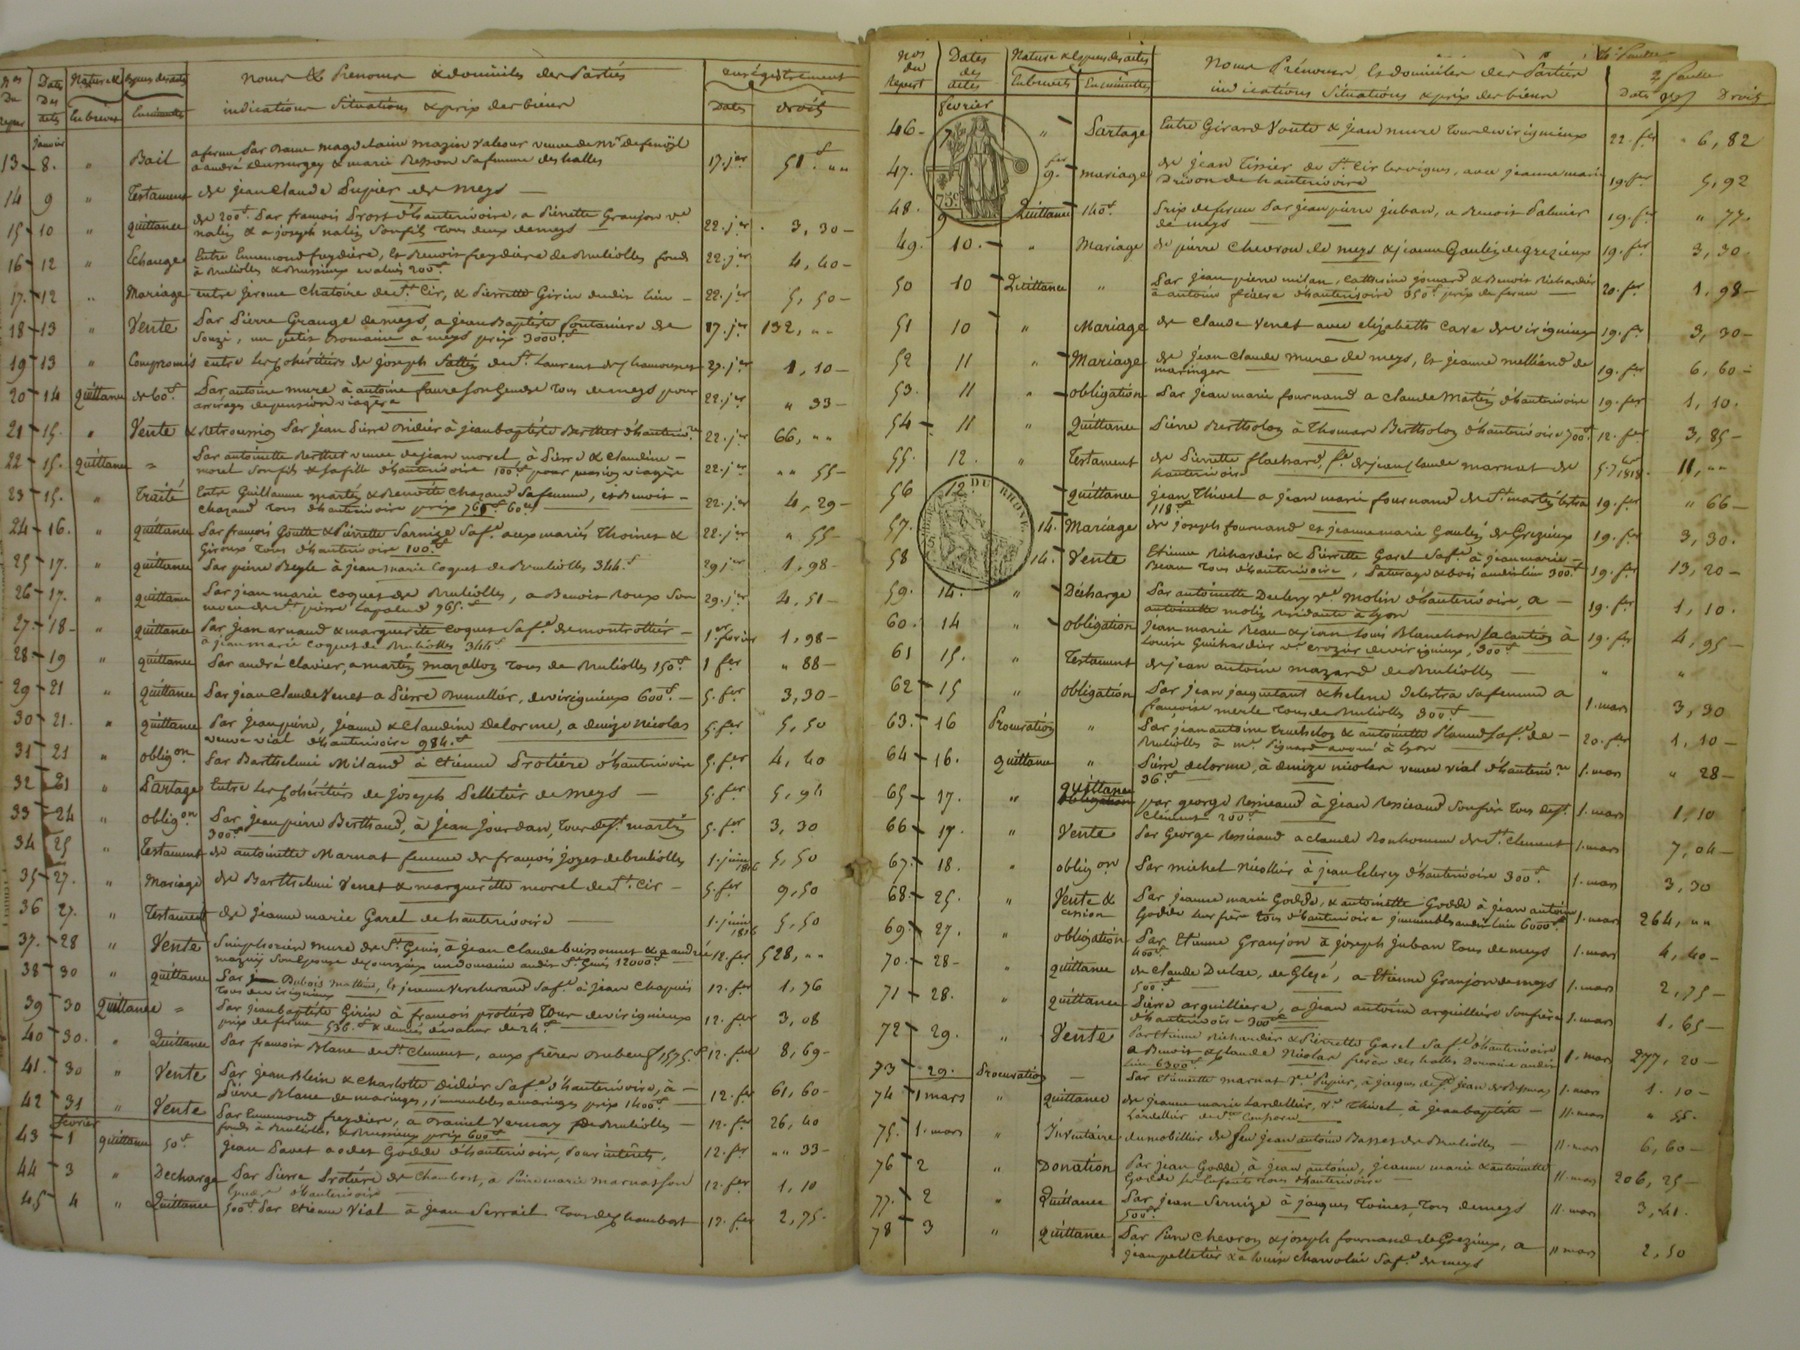 Nos Du Repert
Dates Des actes
Nature & Especes des actes
En brevets
En minutes
Noms & Prenoms & domiciles des Parties
indications Situations & prix des biens
enregistrement
Dates
Droits
Janvier
13 8. " Bail
a ferme par Dame magdelaine mazin Valeour veuve de
a andré & marie Sa femme des halles
17. jer 51 f " "
14 9 " Testament de jean claude Pupier de Meys
15 10 " quittance de 200 f. Par francois Prost d'hauterivoire, a Pierrette Granjon ve
nalin & a joseph nalin Son fils Tous deux de meys
22. jer 3, 30
16 12 " Echange Entre Ennemond freydiere, & Benoit freydiere de Brulioles fonds
à Brulioles & Brussieux evalués 200 f
22. jer 4, 40
17. 12 " Mariage entre jerome Chatoire de St. Cir, & Pierrette Girin dudit lieu
22. jer 5, 50
18 13 " Vente Par Pierre Grange de meys, a jean Baptiste fontaniere de
Souzi, un petit Domaine a meys prix 3000 f
27. jer 132, " "
19 13 " Compromis entre les cohéritiers de joseph de St. Laurent de chamousset
27. jer 1, 10
20 14 quittance de 60 f. Par antoine mure à antoine faure Son Gendre Tous de meys pour
arrerages de pension viagère
22. jer " 33
21 15. " Vente & retrocession Par jean Pierre Didier à jean baptiste Berthet d'hauterivre
22. jer 66, " "
22 15. quittance " Par antoinette Berthet veuve de jean morel, à Pierre & Claudine
morel Son fils & Sa fille d'hauterivoire 100 f pour pension viagère
22. jer " " 55
23 15. " Traité Entre Guillaume martin & Benoite Chazaud Sa femme, & Benoit
Chazaud Tous d'hauterivoire prix 761 f 60
22. jer 4, 29
24 16. " quittance Par francois Goutte & Pierrette Sarnize Sa fe. aux mariés Thoinet &
Giroux Tous d'hauterivoire 100 f
22. jer " 55
25 17. " quittance Par pierre Beyle à jean marie Coquet de Brulioles 344 f
29 jer 1, 98
26 17. " quittance Par jean marie Coquet de Brulioles, a Benoit Roux Son
neveu de St. pierre Lapalud 965 f
29. jer 4, 51
27 18 " quittance Par jean arnaud & marguerite Coquet Sa fe. de montrottier
à jean marie Coquet de Brulioles 344 f
1er. fevrier 1, 98
28 19 " quittance Par andré Clavier, a martin mazallon Tous de Brulioles 150 f
1 fer " 88
29 21 " quittance Par jean Claude Venet a Pierre Brunellier, de virigneux 600 f
5. fer 3, 30
30 21. " quittance Par jean pierre, jeanne & Claudine Delorme, a denize Nicolas
veuve vial d'hauterivoire 984 f
5. fer 5, 50
31 21 " oblig.on Par Barthelemi Miland à etienne Protiere d'hauterivoire
5. fer 4, 40
32 21 " Partage Entre les cohéritiers de joseph Pelletier de Meys
5. fer 5, 94
33 24 " oblig.on Par jean pierre Berthaud, à jean jourdan, Tous de St. martin
300 f
5. fer 3, 30
34 25 " Testament de antoinette Marnat femme de françois joyet de brulioles
1. juin 1816 5, 50
35 27. " Mariage de Barthelemi Venet & marguerite morel de St. Cir
5. fer 9, 50
36 27. " Testament de jeanne marie Garel de hauterivoire
1. juin 1816 5, 50
37. 28 " Vente Simphorien mure de St. Genis, à jean Claude buissonnet & andrée
mazuy Son Epouse de un domaine audit St. Genis 12000 f
12. fer 528, " "
38 30 " quittance Par Dubois Mathieu, & jeanne Sa fe. à jean Chapuis
Tous de virigneux
12. fer 1, 76
39 30 Quittance " Par jean baptiste Girin à francois Tous de virigneux
prix de ferme 536 f. & denrées évaluées 24 f
12. fer 3, 08
40 30. " Quittance Par francois Blanc de St. Clement, aux frères 1575 f
12. fer 8, 69
41. 30 " Vente Par jean Blein & Charlotte Didier Sa fe. d'hauterivoire, à
Pierre Blanc de maringes, immeubles a maringes prix 1400 f
12. fer 61, 60
42 31 " Vente Par Ennemond freydiere, a Daniel Vernay de Brulioles
fonds à Brulioles & Brussieux prix 600 f
12. fer 26, 40
fevrier
43 1 quittance 50 f jean Savet a Godde d'hauterivoire, Pour intérêts.
12. fer " " 33
44 3 " Decharge Par Pierre Protiere de Chambost, a Pierre marie Marnas Son
d'hauterivoire
12. fer 1, 10
45 4 " Quittance 500 f. Par etienne Vial à jean Serrail Tous de chambost
12. fer 2, 75
Nos du Repert
Dates des actes
Nature & Especes des actes
En brevets
En minutes
Noms Prénoms & domiciles des Parties
indications Situations & prix des biens
Dates
Droits
fevrier
46 7 " Partage Entre Girard Voute & jean mure Tous de virigneux
22. fer " 6, 82
47. 9. mariage de jean Tissier de St. Cir les vignes, avec jeanne marie
de hauterivoire
19 fer 5, 92
75c
48. 9 Quittance 140 f Prix de ferme Par jean pierre juban, a Benoit Palmier
de meys
19. fer " 77.
49. 10. " Mariage de pierre Chevron de meys & jeanne Goulin de grezieux
19. fer 3, 30
50 10 Quittance " Par jean pierre milan, Catherine & Benoit Richardier
à antoine d'hauterivoire 350 f prix de ferme
20. fer 1, 98
51 10 " Mariage de Claude Venet avec elizabeth Cave de virigneux
19. fer 3, 30
52 11 " Mariage de jean Claude mure de meys, & jeanne melliand de
maringes
19. fer 6, 60
53. 11 " obligation Par jean marie fournand a Claude Martin d'hauterivoire
19. fer 1, 10.
54 11 " Quittance Pierre Bertholon à Thomas Bertholon d'hauterivoire 700 f
12. fer 3, 85
55. 12. " Testament de Pierrette flachard, fe. de jean Claude marnat de
hauterivoire
1818. 11, " "
56 12 " quittance jean Thivel a jean marie fournand de St. martin Lestra
118 f
19. fer " 66
DU RHONE
57. 14. Mariage de joseph fournand et jeanne marie Goulin de Grezieux
19. fer 3, 30.
58 14. Vente Etienne Richardier & Pierrette Garel Sa fe. à jean marie
Beau Tous d'hauterivoire, Paturage & bois audit lieu 300 f
19. fer 13, 20
59. 14. " Décharge Par antoinette ve. Molin d'hauterivoire, a
antoinette molin residante à Lyon
19. fer 1, 10.
60. 14 " obligation jean marie Beau & jean Louis Blanchon Sa caution à
Louise Guichardier ve. crozier de virigneux, 300 f
19. fer 4, 95
61 15. " Testament de jean antoine mazard de Brulioles
" "
62 15 " obligation Par jean jacquetant & helene Delestra Sa femme a
françoise merle Tous de Brulioles 300 f
1. mars 3, 30
63. 16 Procuration " Par jean antoine & antoinette Sa fe. de
Brulioles à Mr. avoué à Lyon
20. fer 1, 10
64 16. quittance " Pierre delorme, à denize nicolas veuve vial d'hauterivre
36 f
1. mars " 28
65 17. " quittance
par george Ressicaud à jean Ressicaud Son frère Tous de St.
Clement 200 f
1. mars 1, 10
66 17. " Vente Par George Ressicaud a claude Bonhomme de St. Clement
1. mars 7, 04
67. 18. " oblig.on Par michel Nicollier à jean Lelery d'hauterivoire 300 f
1. mars 3, 30
68 25. " Vente & cession Par jeanne marie Godde, & antoinette Godde à jean antoine
Godde Leur frère Tous d'hauterivoire immeubles audit lieu 6000 f
1. mars 264, " "
69 27. " obligation Par Etienne Granjon à joseph juban Tous de meys
400 f
1. mars 4, 40
70. 28 " quittance de Claude Dulac, de Glezé, a Etienne Granjon de meys
500 f
1. mars 2, 75
71 28. " quittance Pierre arquilliere, a jean antoine arquilliere Son frère
d'hauterivoire 300 f
1. mars 1, 65
72 29. " Vente Par Etienne Richardier & Pierrette Garel Sa fe. d'hauterivoire
a Benoit & Claude Nicolas freres des halles Domaine audit
lieu 6300 f
1. mars 277, 20
73 29. Procuration Par Etiennette marnat ve. Pupier, à jacques
1. mars 1. 10
74 1 mars " quittance de jeanne marie Lardellier, ve. Thivel à jean baptiste
Lardellier de Ste.
11. mars " 55.
75. 1. mars " Inventaire du mobilier de feu jean antoine Basset de Brulioles
11. mars 6, 60
76 2 " Donation Par jean Godde, à jean antoine, jeanne marie & antoinette
Godde ses Enfants Tous d'hauterivoire
11. mars 206, 25
77. 2 " Quittance Par jean Sernize à jacques Toinet, Tous de meys
500 f
11. mars 3, 41.
78 3 " quittance Par Pierre Chevron & joseph fournand de Grezieux, a
jean pelletier & a Louise Sa fe. de meys
11 mars 2, 50